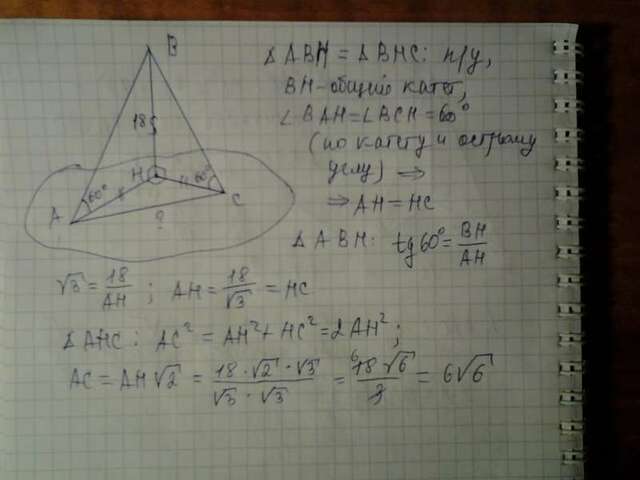 B
18
H
60°
60°
A
C
?
Δ ABH = Δ BHC: п/у,
BH - общий катет,
∠BAH = ∠BCH = 60°
(по катету и острому
углу) ⇒
⇒ AH = HC
Δ ABH: tg 60° = BH/AH
√3 = 18/AH ; AH = 18/√3 = HC
Δ AHC: AC² = AH² + HC² = 2AH²;
AC = AH√2 = 18·√2·√3/√3·√3 = 6 18·√6/3 = 6√6